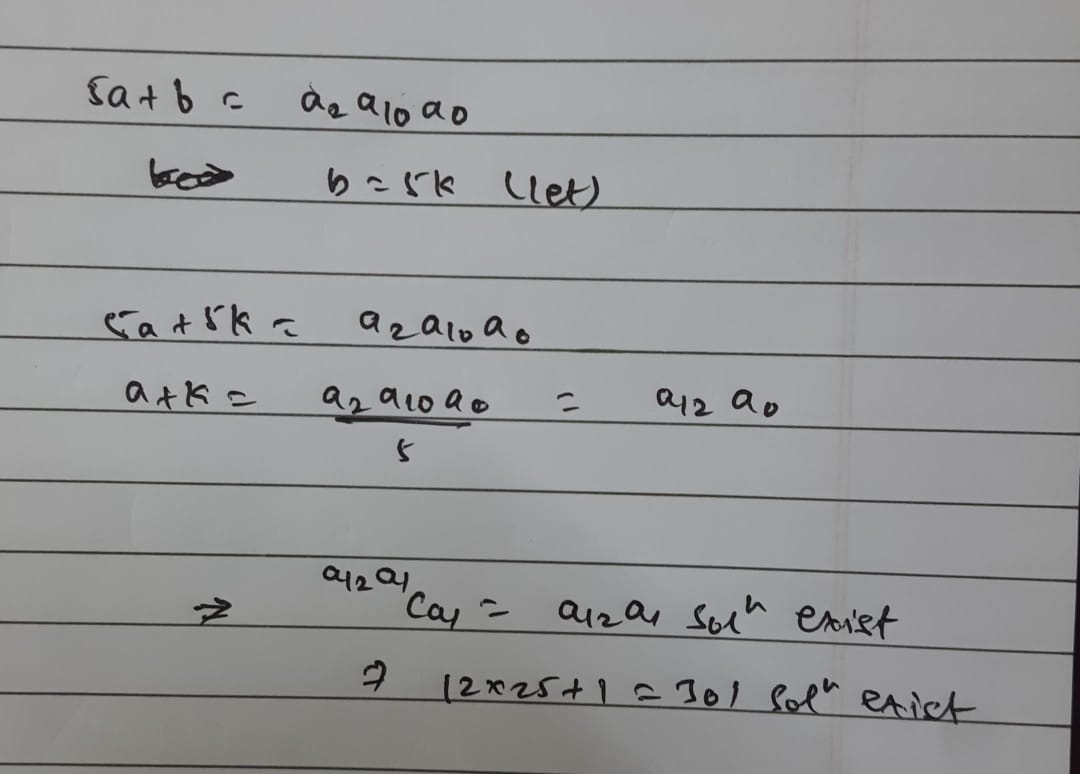 5a + b = a₂ a₁₀ a₀
b = 5k (let)
5a + 5k = a₂ a₁₀ a₀
a + k = a₂ a₁₀ a₀ / 5 = a₁₂ a₀
⇒ ᵃ¹² ᵃ¹Ca₁ = a₁₂ a₁ solⁿ exist
⇒ 12×25+1 = 301 solⁿ exist